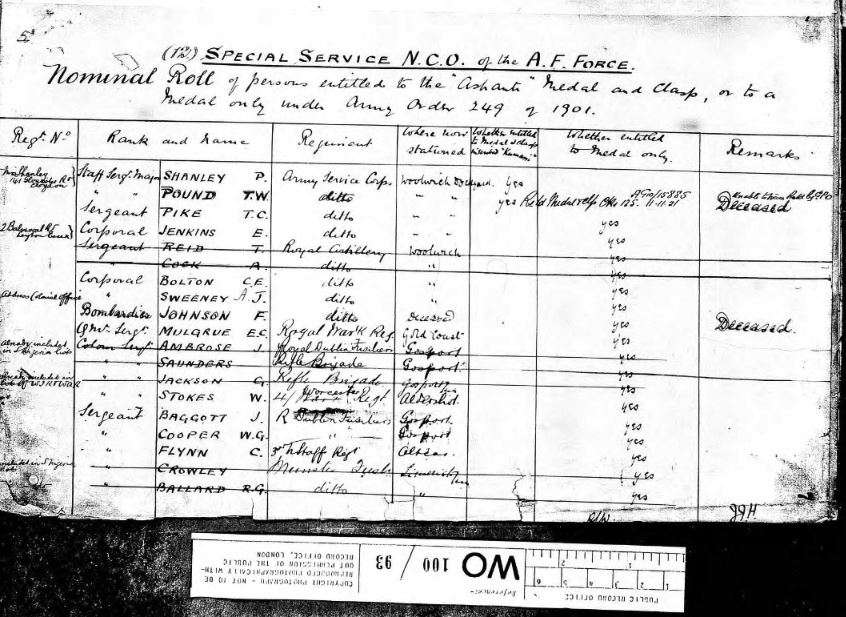 5
(12.) SPECIAL SERVICE N.C.O. of the A.F. FORCE.
Nominal Roll of persons entitled to the "Ashanti" Medal and Clasp, or to a
Medal only under Army Order 249 of 1901.
Regtl. No Rank and Name Regiment Where now stationed Whether entitled to Medal & Clasp Whether entitled to Medal only. Remarks
Staff Sergt. Major SHANLEY P. Army Service Corps Woolwich Dockyard. yes
" " POUND T.W. ditto " " yes 11-11-21 Deceased
Sergeant PIKE T.C. ditto " "
Corporal JENKINS E. ditto " " yes
Sergeant REID T. Royal Artillery Woolwich yes
" COCK A. ditto " yes
Corporal BOLTON C.E. ditto " yes
" SWEENEY A.J. ditto " yes
Bombardier JOHNSON F. ditto Deceased yes Deceased.
Qmr. Sergt. MULGRUE E.C. Royal Warwk Reg. Gold Coast yes
Already included
Colour Sergt. AMBROSE J. Royal Dublin Fusiliers Gosport yes
" " SAUNDERS Rifle Brigade Gosport yes
" " JACKSON G. Rifle Brigade Gosport yes
" " STOKES W. 4/ Worcester Regt. Aldershot yes
Sergeant BAGGOTT J. R Dublin Fusiliers Gosport. yes
" COOPER W.G. " Gosport yes
" FLYNN C. 3rd N Staff Regt yes
" CROWLEY Munster Fus. Limerick yes
" BALLARD R.G. ditto " yes
PUBLIC RECORD OFFICE
Reference:-
WO 100 / 93
COPYRIGHT PHOTOGRAPH - NOT TO BE
REPRODUCED PHOTOGRAPHICALLY WITH-
OUT PERMISSION OF THE PUBLIC
RECORD OFFICE, LONDON
1 2
1 2 3 4 5 6